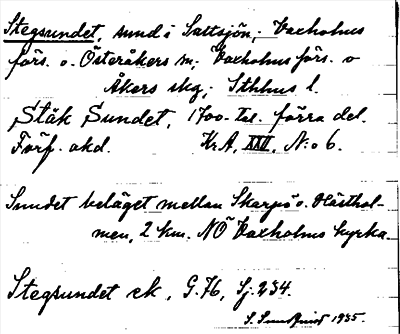 Stegsundet, sund i Saltsjön; Vaxholms
förs. o. Österåkers sn; Vaxholms förs. o
Åkers skg; Sthlms l.
Stäk Sundet, 1700-tal. förra del.
Förf. okd. Kr.A, XXII, N:o 6.
Sundet beläget mellan Skarpö o. Hästhol-
men, 2 km. NÖ Vaxholms kyrka.
Stegsundet ek, G. 76, Sj. 234.
S. Sundqvist 1935.